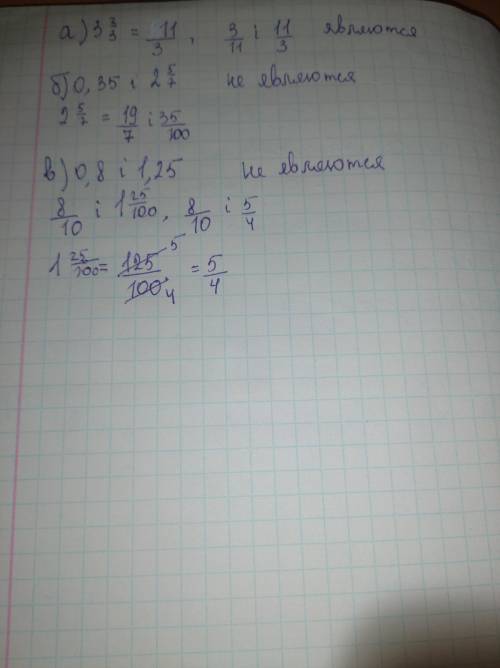 а) 3 3/3 = 11/3, 3/11 i 11/3 являются
б) 0,35 i 2 5/7 не являются
2 5/7 = 19/7 i 35/100
в) 0,8 i 1,25 не являются
8/10 i 1 25/100, 8/10 i 5/4
1 25/100 = 125/100 5 4 = 5/4